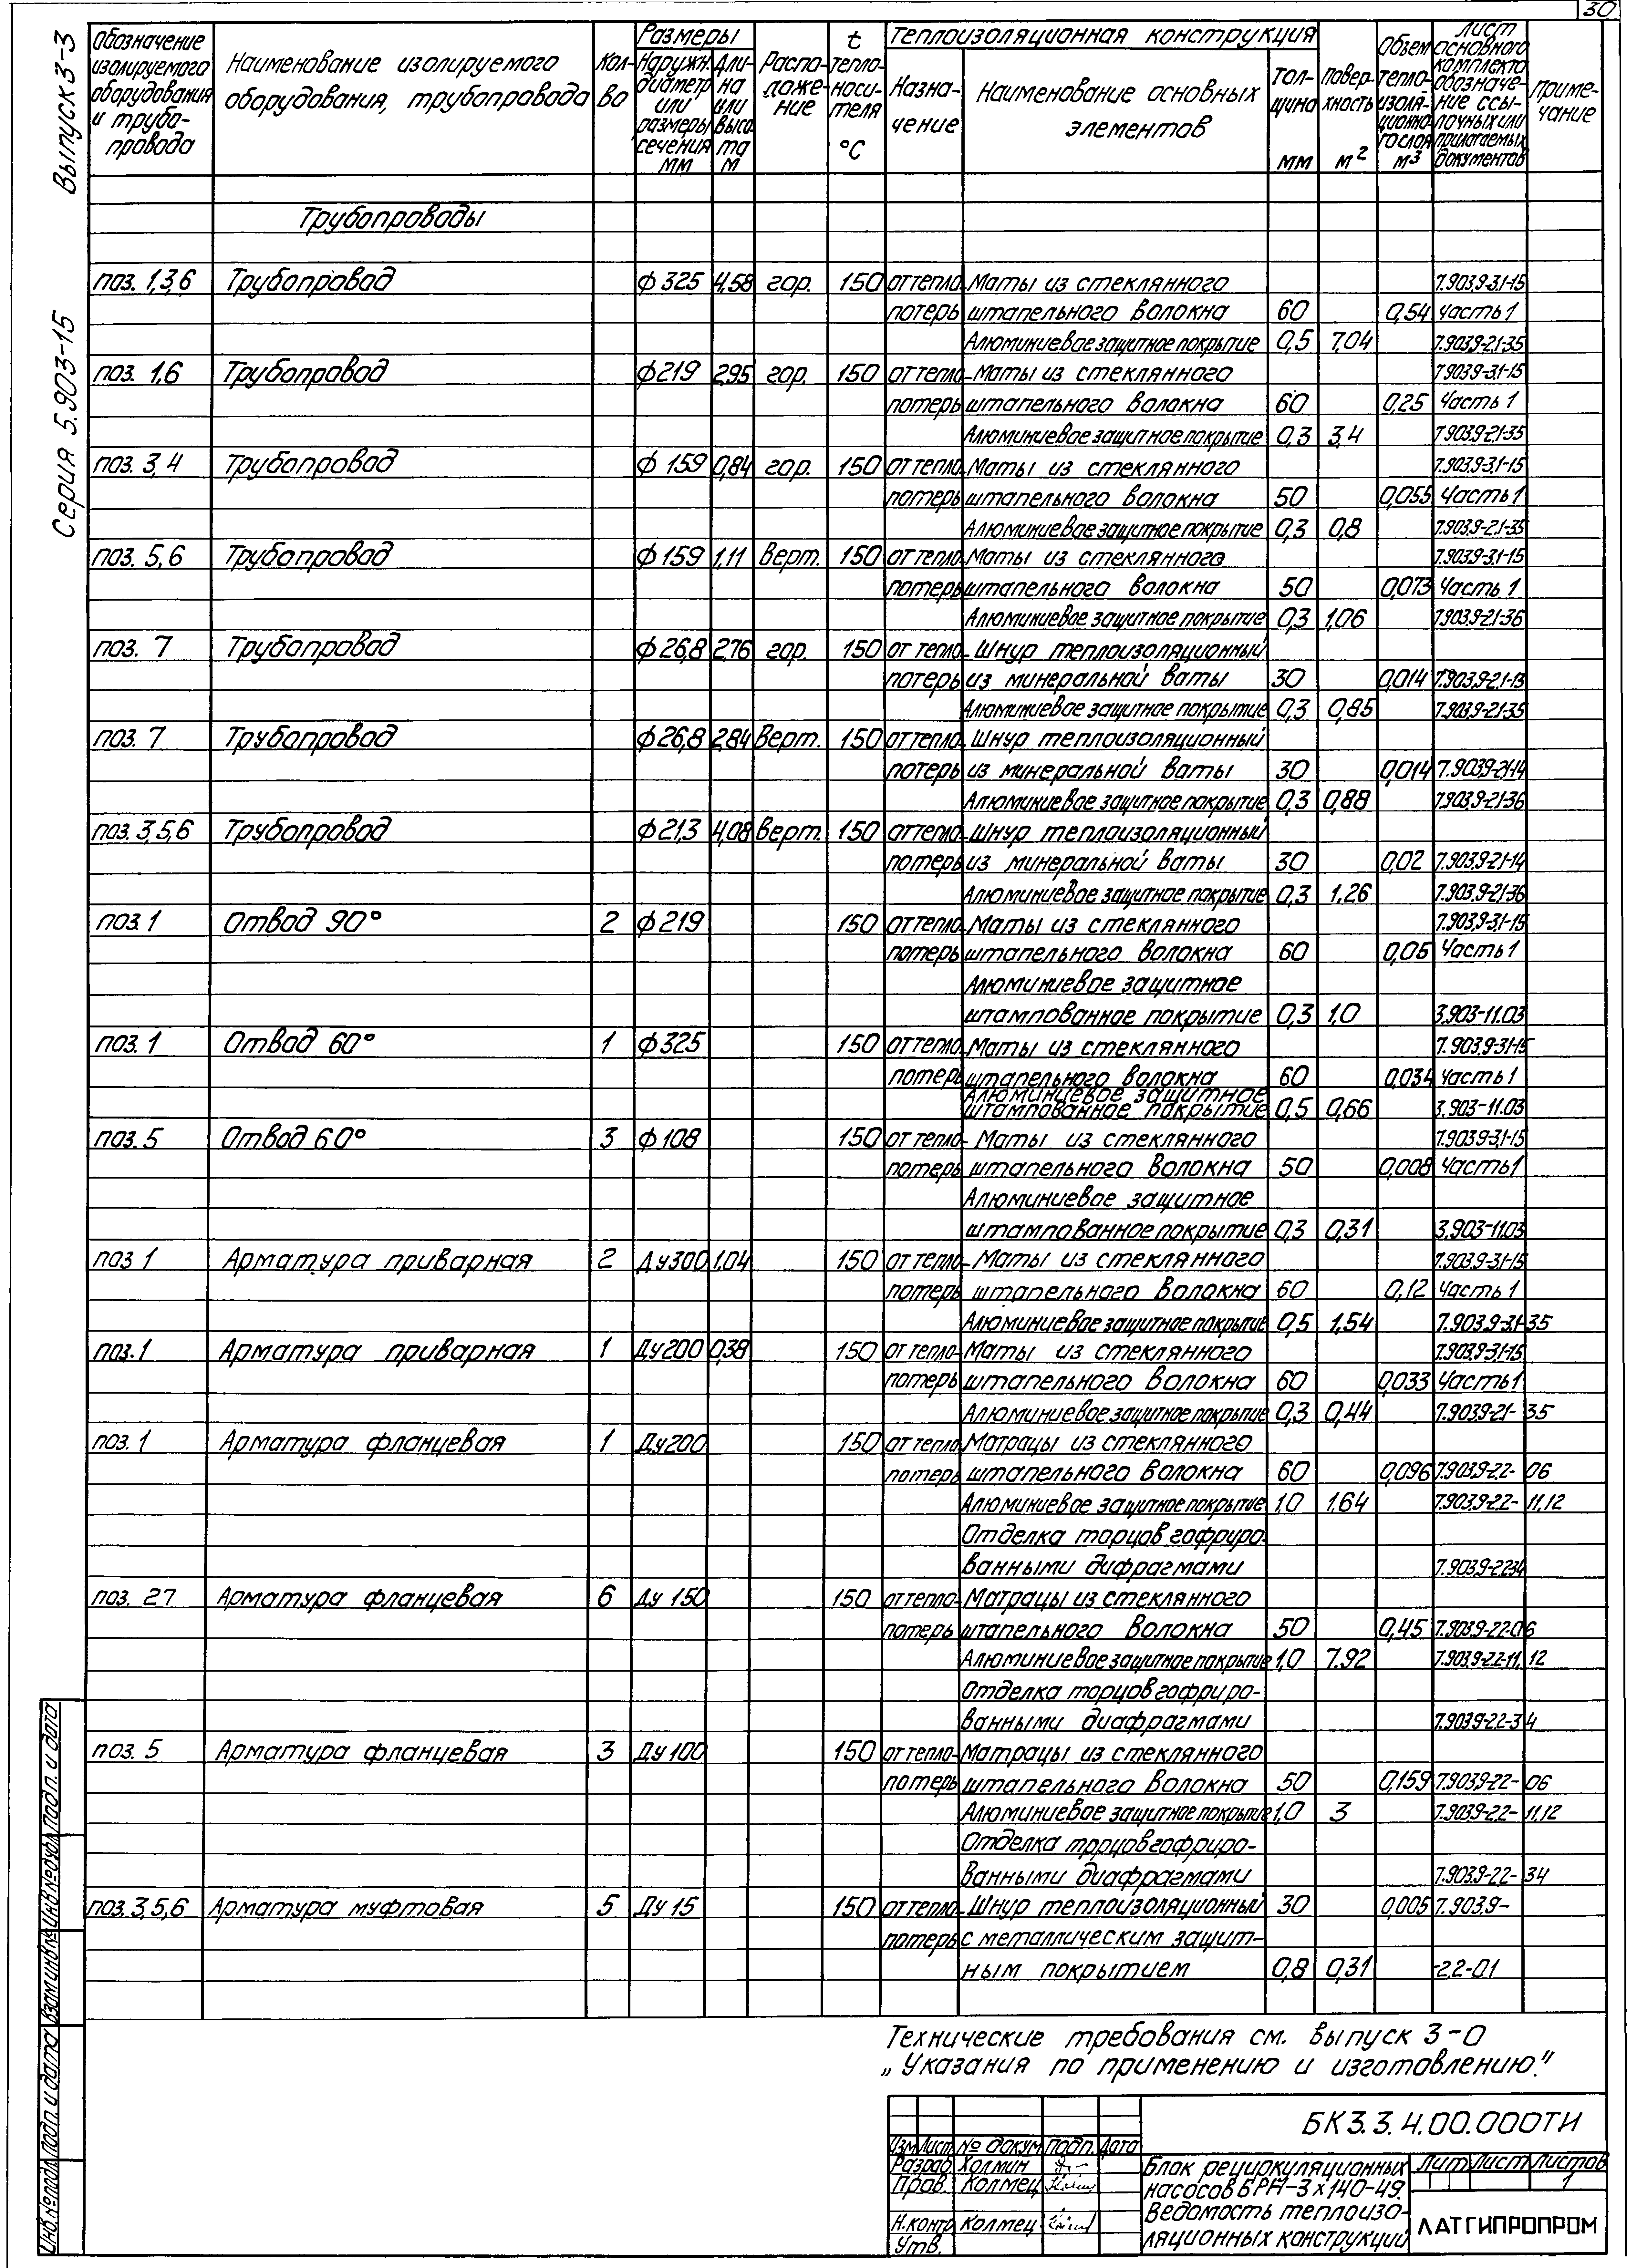 30
Выпуск 3-3
Серия 5.903-15
Обозначение изолируемого оборудования и трубо-провода
Наименование изолируемого оборудования, трубопровода
Кол-во
Размеры
Наружн. диаметр или размеры сечения мм
Дли-на или высо-та м
Распо-ложе-ние
t тепло-носи-теля °С
Теплоизоляционная конструкция
Назна-чение
Наименование основных элементов
Тол-щина мм
Повер-хность м²
Объем тепло-изоля-ционно-го слоя м³
Лист основного комплекта обозначе-ние ссы-лочных или прилагаемых документов
Приме-чание
Трубопроводы
поз. 1,3,6 Трубопровод ф 325 4,58 гор. 150 от тепло- Маты из стеклянного 7.903.9-3.1-15
потерь штапельного волокна 60 0,54 часть 1
Алюминиевое защитное покрытие 0,5 7,04 7.903.9-2.1-35
поз. 1,6 Трубопровод ф 219 2,95 гор. 150 от тепло- Маты из стеклянного 7.903.9-3.1-15
потерь штапельного волокна 60 0,25 Часть 1
Алюминиевое защитное покрытие 0,3 3,4 7.903.9-2.1-35
поз. 3,4 Трубопровод ф 159 0,84 гор. 150 от тепло- Маты из стеклянного 7.903.9-3.1-15
потерь штапельного волокна 50 0,055 Часть 1
Алюминиевое защитное покрытие 0,3 0,8 7.903.9-2.1-35
поз. 5,6 Трубопровод ф 159 1,11 Верт. 150 от тепло- Маты из стеклянного 7.903.9-3.1-15
потерь штапельного волокна 50 0,073 Часть 1
Алюминиевое защитное покрытие 0,3 1,06 7.903.9-2.1-36
поз. 7 Трубопровод ф 26,8 2,76 гор. 150 от тепло- Шнур теплоизоляционный
потерь из минеральной ваты 30 0,014 7.903.9-2.1-13
Алюминиевое защитное покрытие 0,3 0,85 7.903.9-2.1-35
поз. 7 Трубопровод ф 26,8 2,84 Верт. 150 от тепло- Шнур теплоизоляционный
потерь из минеральной ваты 30 0,014 7.903.9-2.1-14
Алюминиевое защитное покрытие 0,3 0,88 7.903.9-2.1-36
поз. 3,5,6 Трубопровод ф 21,3 4,08 Верт. 150 от тепло- Шнур теплоизоляционный
потерь из минеральной ваты 30 0,02 7.903.9-2.1-14
Алюминиевое защитное покрытие 0,3 1,26 7.903.9-2.1-36
поз. 1 Отвод 90° 2 ф 219 150 от тепло- Маты из стеклянного 7.903.9-3.1-15
потерь штапельного волокна 60 0,05 Часть 1
Алюминиевое защитное
штампованное покрытие 0,3 1,0 3.903-11.03
поз. 1 Отвод 60° 1 ф 325 150 от тепло- Маты из стеклянного 7.903.9-3.1-15
потерь штапельного волокна 60 0,034 Часть 1
Алюминиевое защитное
штампованное покрытие 0,5 0,66 3.903-11.03
поз. 5 Отвод 60° 3 ф 108 150 от тепло- Маты из стеклянного 7.903.9-3.1-15
потерь штапельного волокна 50 0,008 Часть 1
Алюминиевое защитное
штампованное покрытие 0,3 0,31 3.903-11.03
поз 1 Арматура приварная 2 Ду300 1,04 150 от тепло- Маты из стеклянного 7.903.9-3.1-15
потерь штапельного волокна 60 0,12 Часть 1
Алюминиевое защитное покрытие 0,5 1,54 7.903.9-3.1-35
поз. 1 Арматура приварная 1 Ду200 0,38 150 от тепло- Маты из стеклянного 7.903.9-3.1-15
потерь штапельного волокна 60 0,033 Часть 1
Алюминиевое защитное покрытие 0,3 0,44 7.903.9-2.1-35
поз. 1 Арматура фланцевая 1 Ду200 150 от тепло Матрацы из стеклянного
потерь штапельного волокна 60 0,096 7.903.9-2.2-06
Алюминиевое защитное покрытие 1,0 1,64 7.903.9-2.2-11,12
Отделка торцов гофриро-
ванными дифрагмами 7.903.9-2.2-34
поз. 27 Арматура фланцевая 6 Ду 150 150 от тепло- Матрацы из стеклянного
потерь штапельного волокна 50 0,45 7.903.9-2.2-06
Алюминиевое защитное покрытие 1,0 7.92 7.903.9-2.2-11, 12
Отделка торцов гофриро-
ванными диафрагмами 7.903.9-2.2-34
поз. 5 Арматура фланцевая 3 Ду 100 150 от тепло- Матрацы из стеклянного
потерь штапельного волокна 50 0,159 7.903.9-2.2-06
Алюминиевое защитное покрытие 1,0 3 7.903.9-2.2-11,12
Отделка торцов гофриро-
ванными диафрагмами 7.903.9-2.2-34
поз. 3,5,6 Арматура муфтовая 5 Ду 15 150 от тепло- Шнур теплоизоляционный 30 0,005 7.903.9-
потерь с металлическим защит-
ным покрытием 0,8 0,31 -2.2-01
Технические требования см. выпуск 3-0
„Указания по применению и изготовлению."
БК3.3.4.00.000ТИ
Изм Лист № докум Подп. Дата
Разраб. Холмин
Пров. Колмец
Н.контр Колмец
Утв.
Блок рециркуляционных
насосов БРН-3х140-49.
Ведомость теплоизо-
ляционных конструкций
Лит Лист Листов
1
ЛАТГИПРОПРОМ
Инв.№ подл. Подп. и дата Взам.инв.№ Инв.№ дубл. Подп. и дата